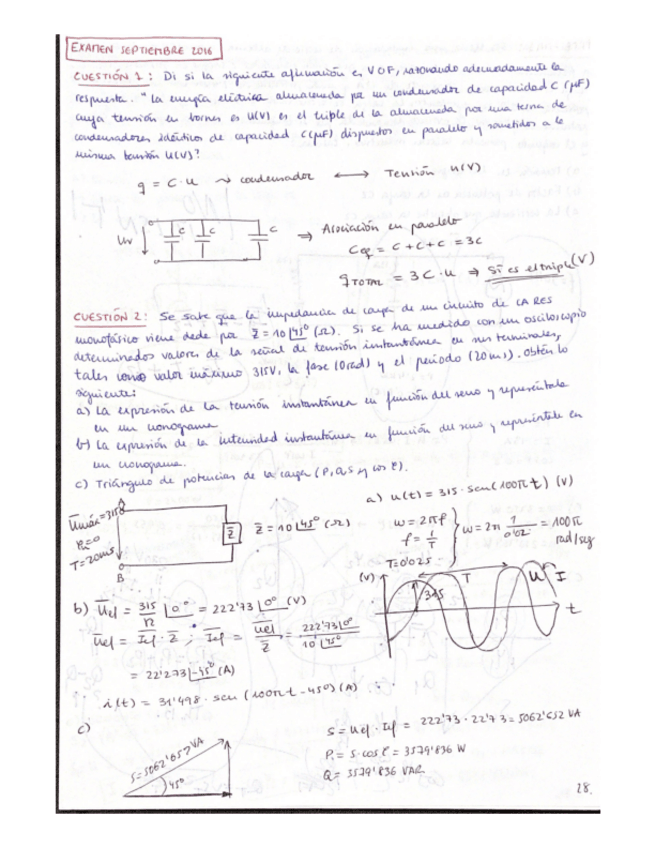 EXAMEN SEPTIEMBRE 2016
CUESTIÓN 1: Di si la siguiente afirmación es V O F, razonando adecuadamente la
respuesta. "La energía eléctrica almacenada por un condensador de capacidad C (μF)
cuya tensión en bornes es U(V) es el triple de la almacenada por una terna de
condensadores idénticos de capacidad C (μF) dispuestos en paralelo y sometidos a la
misma tensión U(V)?
q = C · u ⤳ condensador ⟷ Tensión u(V)
Uv C C C ⇒ Asociación en paralelo
Ceq = C + C + C = 3C
qTOTAL = 3C · u ⇒ Si es el triple (V)
CUESTIÓN 2: Se sabe que la impedancia de carga de un circuito de CA RES
monofásico viene dada por Z̄ = 10∟45° (Ω). Si se ha medido con un osciloscopio
determinados valores de la señal de tensión instantánea en sus terminales,
tales como valor máximo 315V, la fase (0rad) y el periodo (20ms). Obtén lo
siguiente:
a) La expresión de la tensión instantánea en función del seno y represéntala
en un cronograma
b) La expresión de la intensidad instantánea en función del seno y represéntela en
un cronograma.
c) Triángulo de potencias de la carga (P, Q, S y cos φ).
A
Umáx = 315
φu=0
T=20ms
B
Z̄
Z̄ = 10∟45° (Ω)
a) u(t) = 315 · sen(100π t) (V)
w = 2πf
f = 1/T
T=0'02s
w = 2π 1/0'02 = 100π rad/seg
(V) T U I
315
t
b) Ūef = 315/√2 ∟0° = 222'73∟0° (V)
Ūef = Īef · Z̄ ; Īef = Ūef/Z̄ = 222'73∟0°/10∟45°
= 22'273∟-45° (A)
i(t) = 31'498 · sen (100π t - 45°) (A)
c)
S=5062'652 VA
45°
S = Uef · Ief = 222'73 · 22'273 = 5062'652 VA
P = S · cos φ = 3579'836 W
Q = 3579'836 VAR
28.